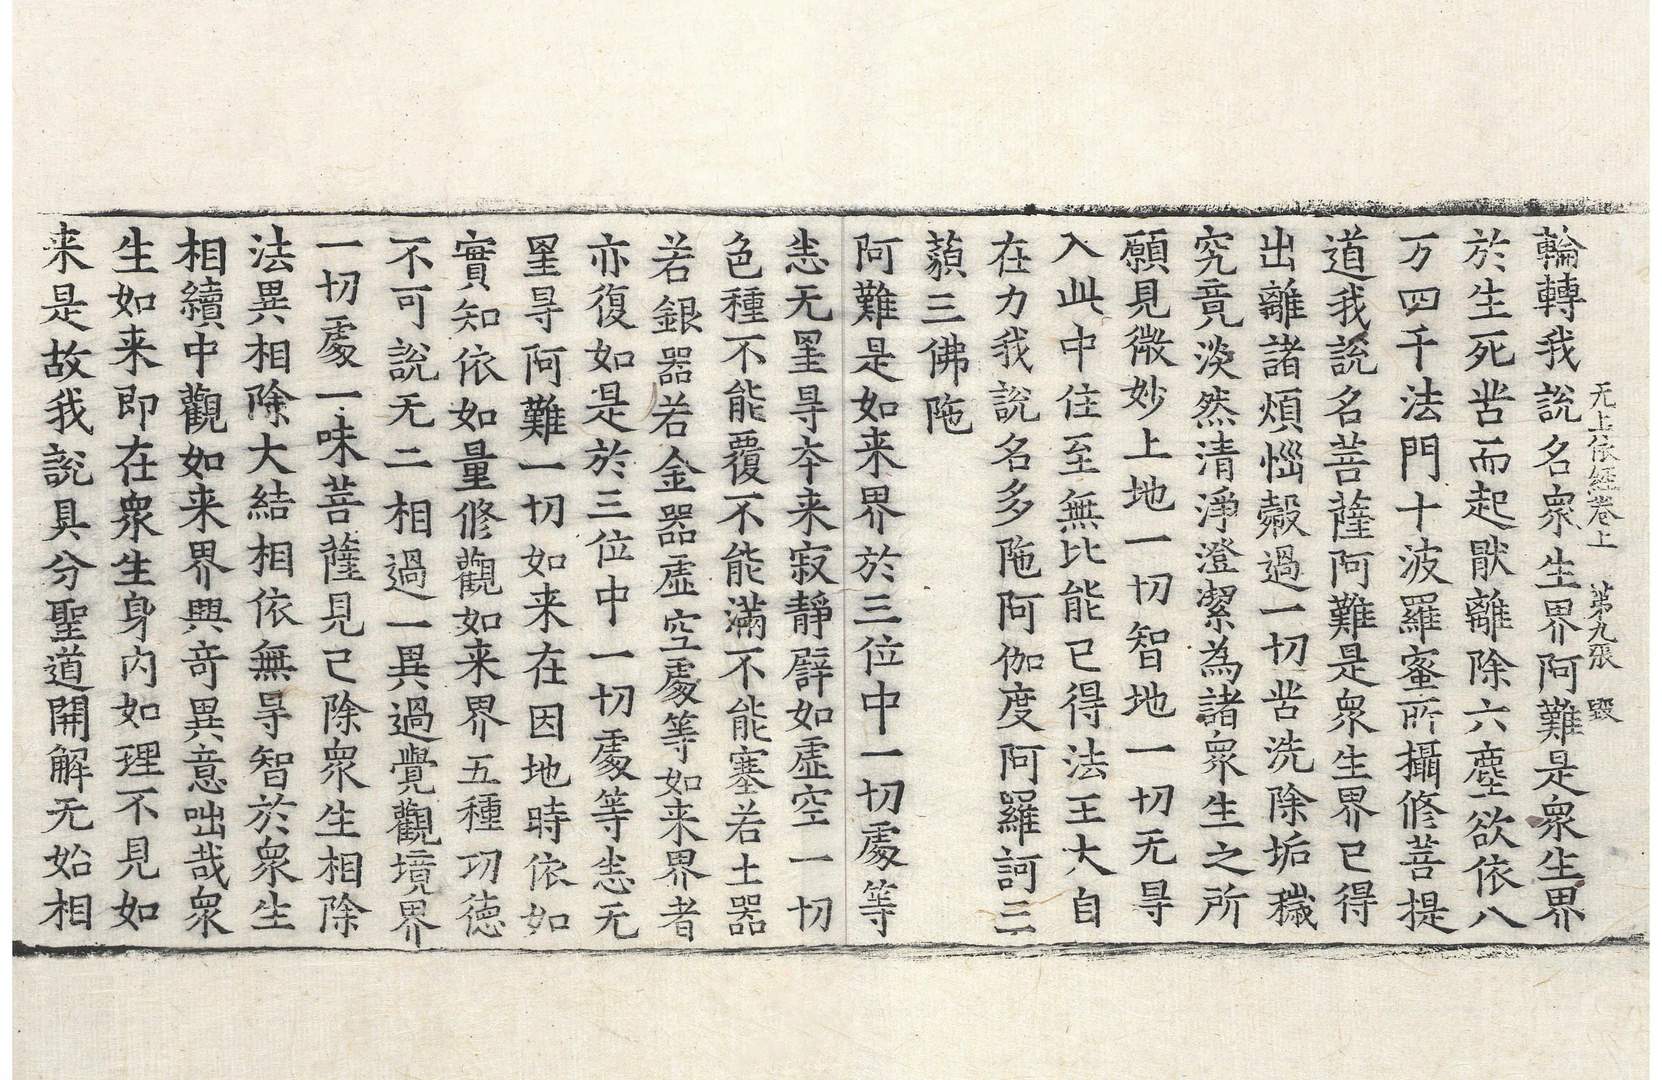 无上依經卷上　第九張　毁
輪轉我說名衆生界阿難是衆生界
於生死苦而起猒離除六塵欲依八
万四千法門十波羅蜜所攝修菩提
道我說名菩薩阿難是衆生界已得
出離諸煩惱㲉過一切苦洗除垢穢
究竟淡然清淨澄潔為諸衆生之所
願見微妙上地一切智地一切无㝵
入此中住至無比能已得法王大自
在力我說名多陁阿伽度阿羅訶三
藐三佛陁
阿難是如来界於三位中一切處等
恚无罣㝵夲来寂靜譬如虛空一切
色種不能覆不能滿不能塞若土器
若銀器若金器虛空處等如来界者
亦復如是於三位中一切處等恚无
罣㝵阿難一切如来在因地時依如
實知依如量修觀如来界五種功德
不可說无二相過一異過覺觀境界
一切處一味菩薩見已除衆生相除
法異相除大結相依無㝵智於衆生
相續中觀如来界興奇異意咄哉衆
生如来即在衆生身內如理不見如
来是故我說具分聖道開解无始相